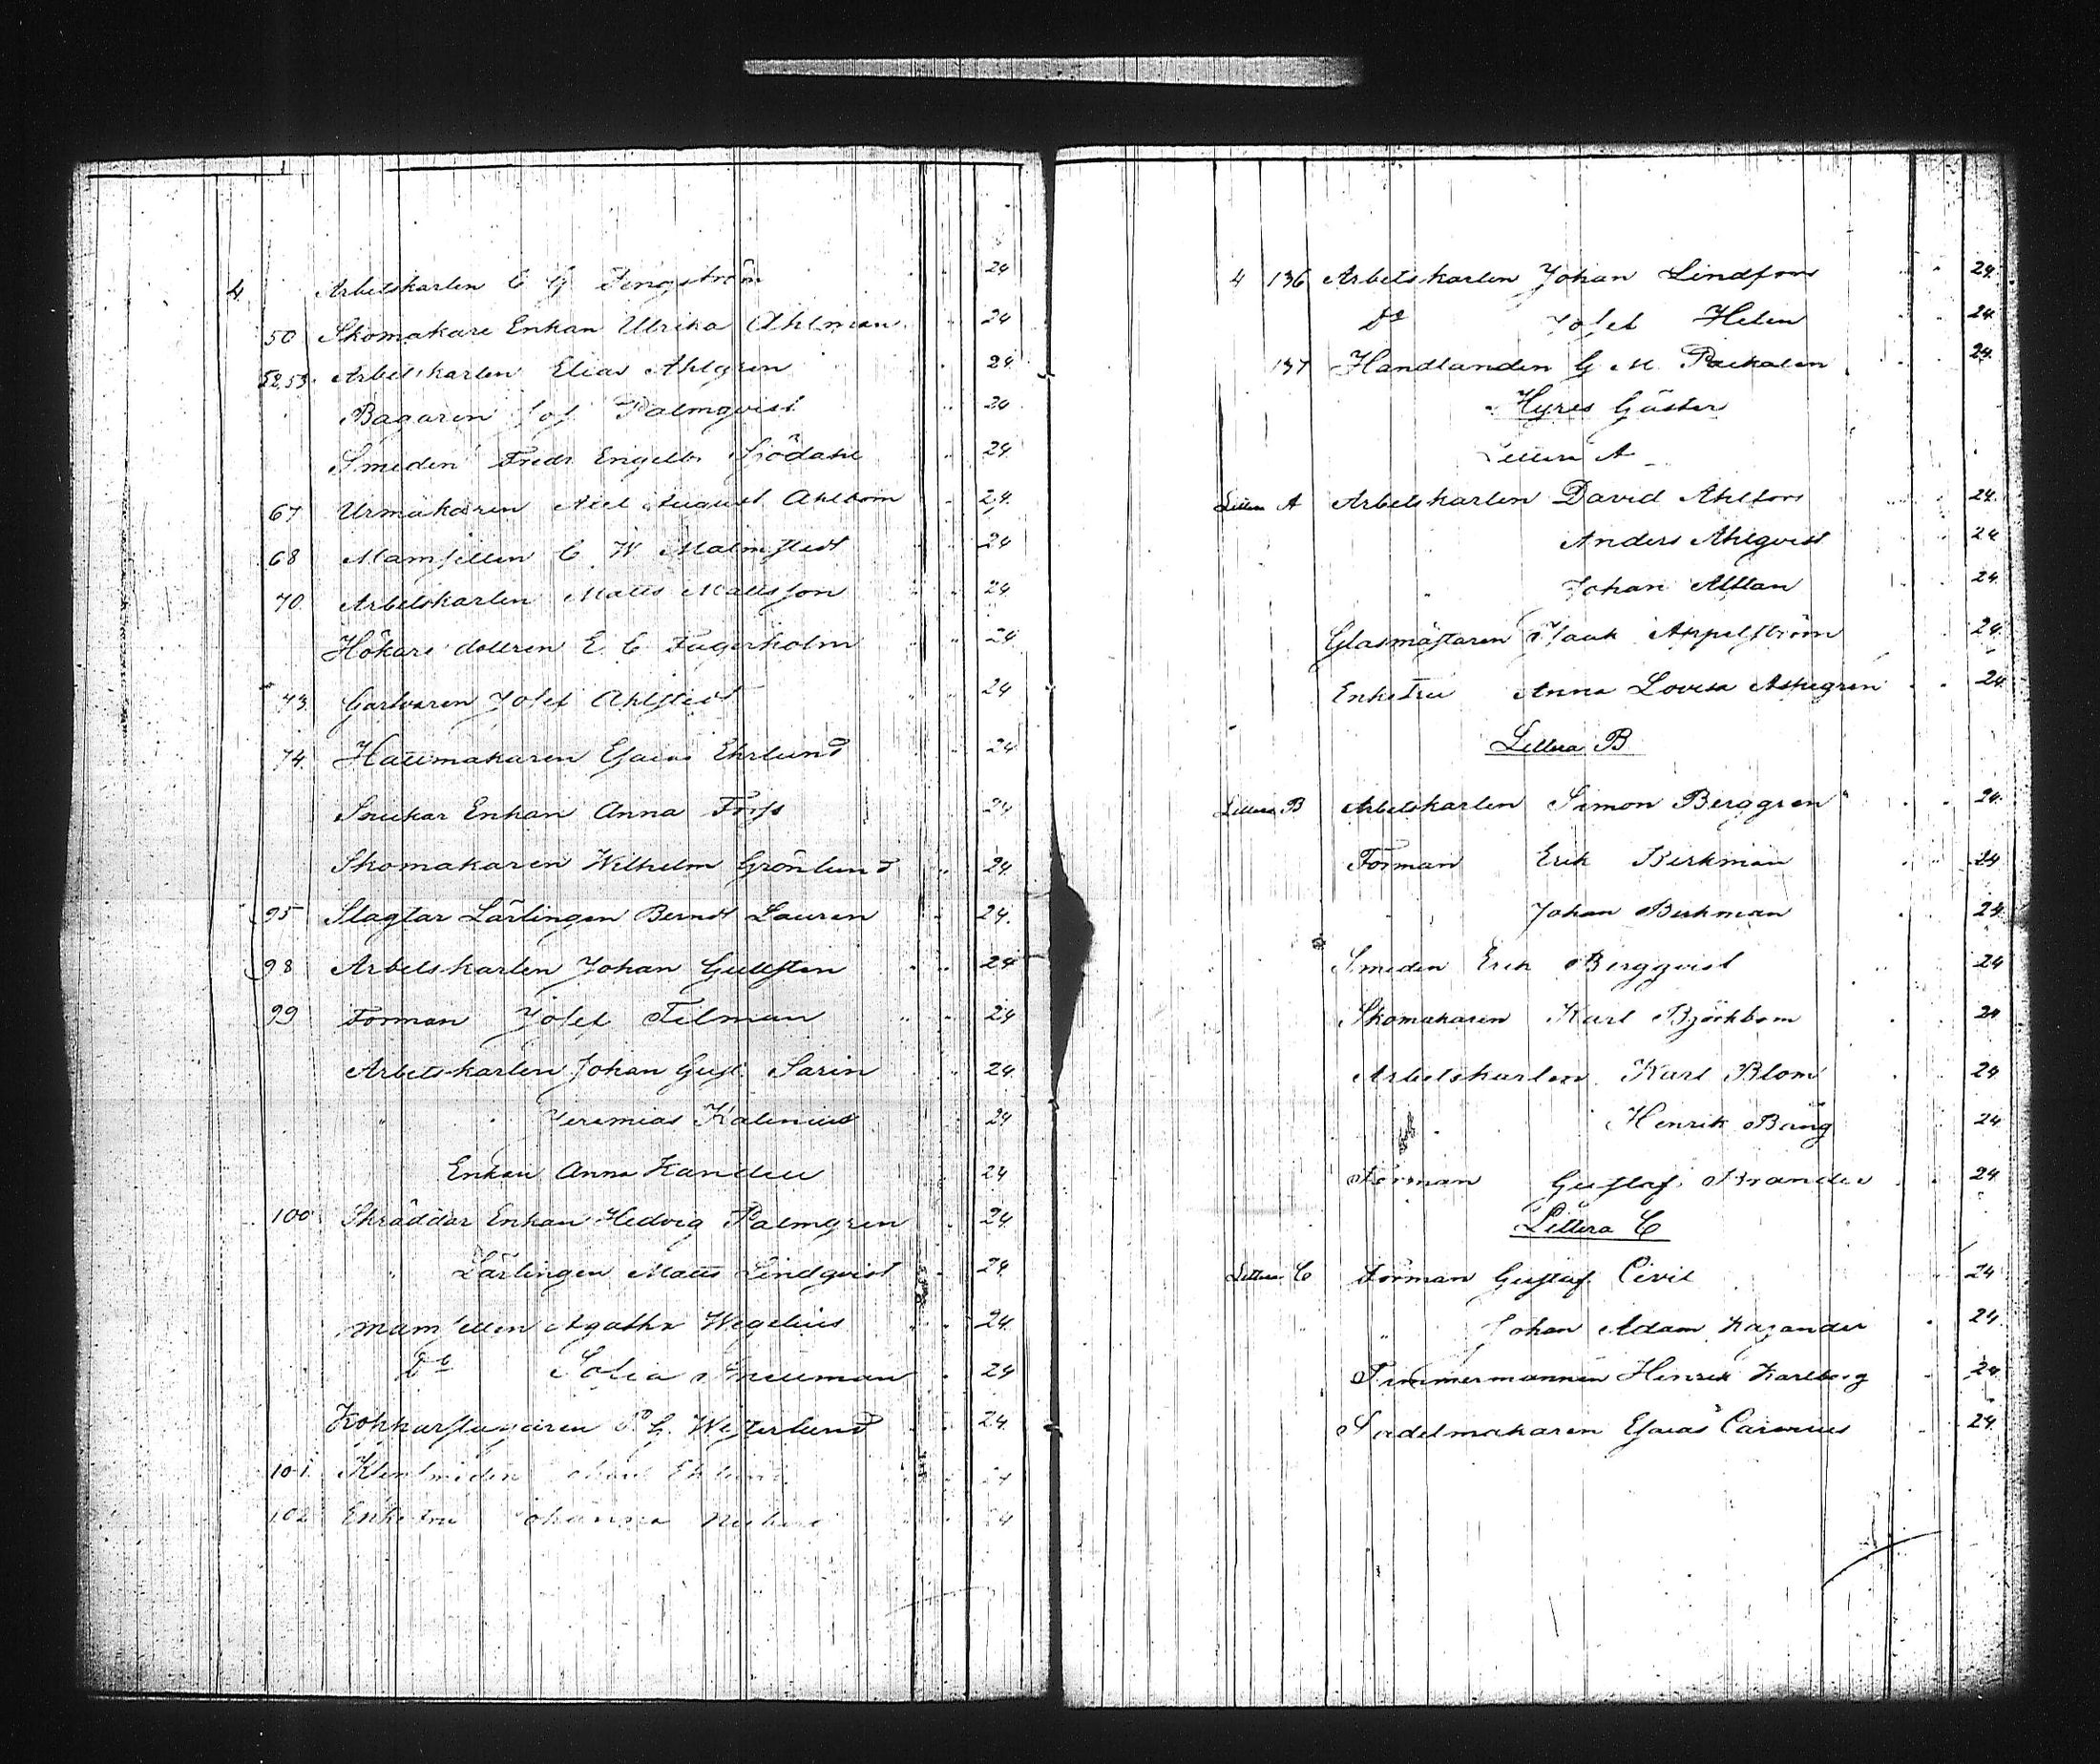 4 Arbetskarlen C G Fingström 24
50 Skomakare Enkan Ulrika Ahlman 24
52,53 Arbetskarlen Elias Ahlgren 24
Bagaren Jos. Palmqvist 24
Smeden Fredr Engelb. Sjödahl 24
67 Urmakaren Axel August Ahlbom 24
68 Mamsellen C W Malmstedt 24
70 Arbetskarlen Matts Mattsson 24
Hökare dottren E C Fagerholm 24
73 Garfvaren Josef Ahlstedt 24
74 Hattmakaren Esaias Ehrlund 24
Snickar Enkan Anna Forss 24
Skomakaren Wilhelm Grönlund 24
95 Slagtar Lärlingen Berndt Lauren 24
98 Arbetskarlen Johan Gullsten 24
99 Forman Josef Filman 24
Arbetskarlen Johan Gust. Sarin 24
" " Jeremias Kalenius 24
Enkan Anna 24
100 Skräddar Enkan Hedvig Palmgren 24
" Lärlingen Matts Lindqvist 24
Mamsellen Agatha Wegelius 24
Do Sofia 24
Kopparslagaren P. G. Westerlund 24
101 Klensmeden 24
102 Enkefru Johanna 24
4 136 Arbetskarlen Johan Lindfors 24
Do Josef Helen 24
137 Handlanden G M Packalen 24
Hyres Gäster
Littera A
Littera A Arbetskarlen David Ahlfors 24
Anders Ahlqvist 24
" Johan Alttan 24
Glasmästaren Isaak Appelström 24
Enkefru Anna Lovisa Aspegren 24
Littera B
Littera B Arbetskarlen Simon Berggren 24
Forman Erik Birkman 24
" Johan Birkman 24
Smeden Erik Bergqvist 24
Skomakaren Karl Björkbom 24
Arbetskarlen Karl Blom 24
Henrik Bäng 24
Forman Gustaf Brander 24
Littera C
Littera C Forman Gustaf Civil 24
" Johan Adam Kasander 24
Timmermannen Henrik Karlberg 24
Sadelmakaren Esaias Carenius 24